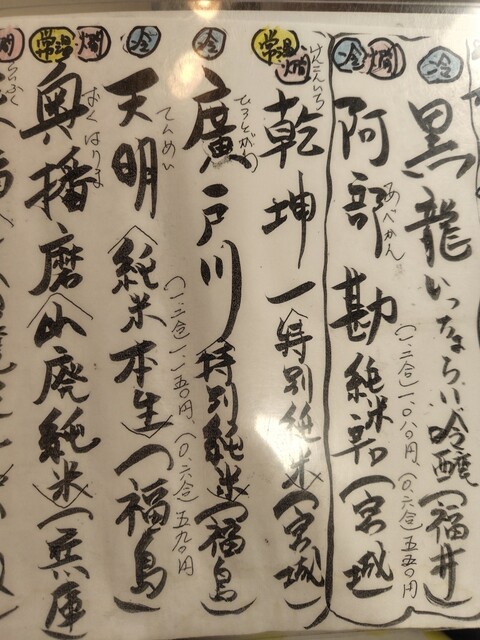 冷
黒龍 いっちょらい 吟醸(福井)
冷 燗
阿部勘 純米辛口(宮城)
あべかん
(一.二合)一、〇八〇円、(〇.六合)五五〇円
常温 燗
乾坤一〈特別純米〉(宮城)
けんこんいち
冷
廣戸川 特別純米(福島)
ひろとがわ
冷
天明〈純米本生〉(福島)
てんめい
(一.二合)一、一五〇円、(〇.六合)五九〇円
常温 燗
奥播磨〈山廃純米〉(兵庫)
おくはりま
燗